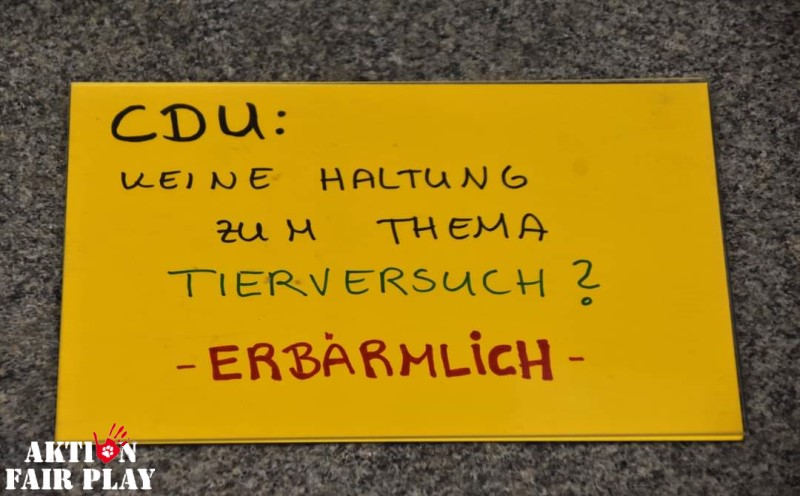 CDU:
KEINE HALTUNG
ZUM THEMA
TIERVERSUCH?
- ERBÄRMLICH -
AKTION
FAIR PLAY